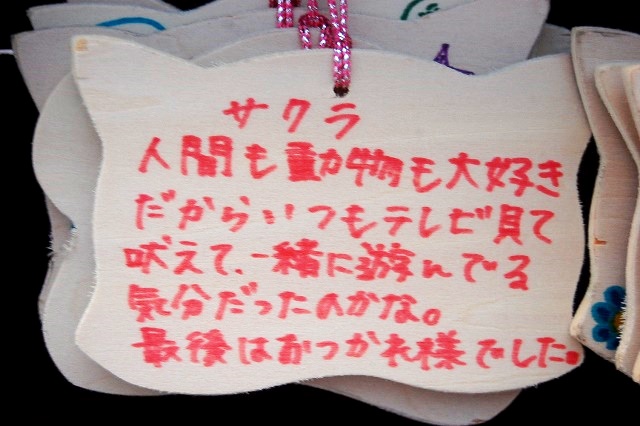 サクラ
人間も動物も大好き
だからいつもテレビ見て
吠えて、一緒に遊んでる
気分だったのかな。
最後はおつかれ様でした。